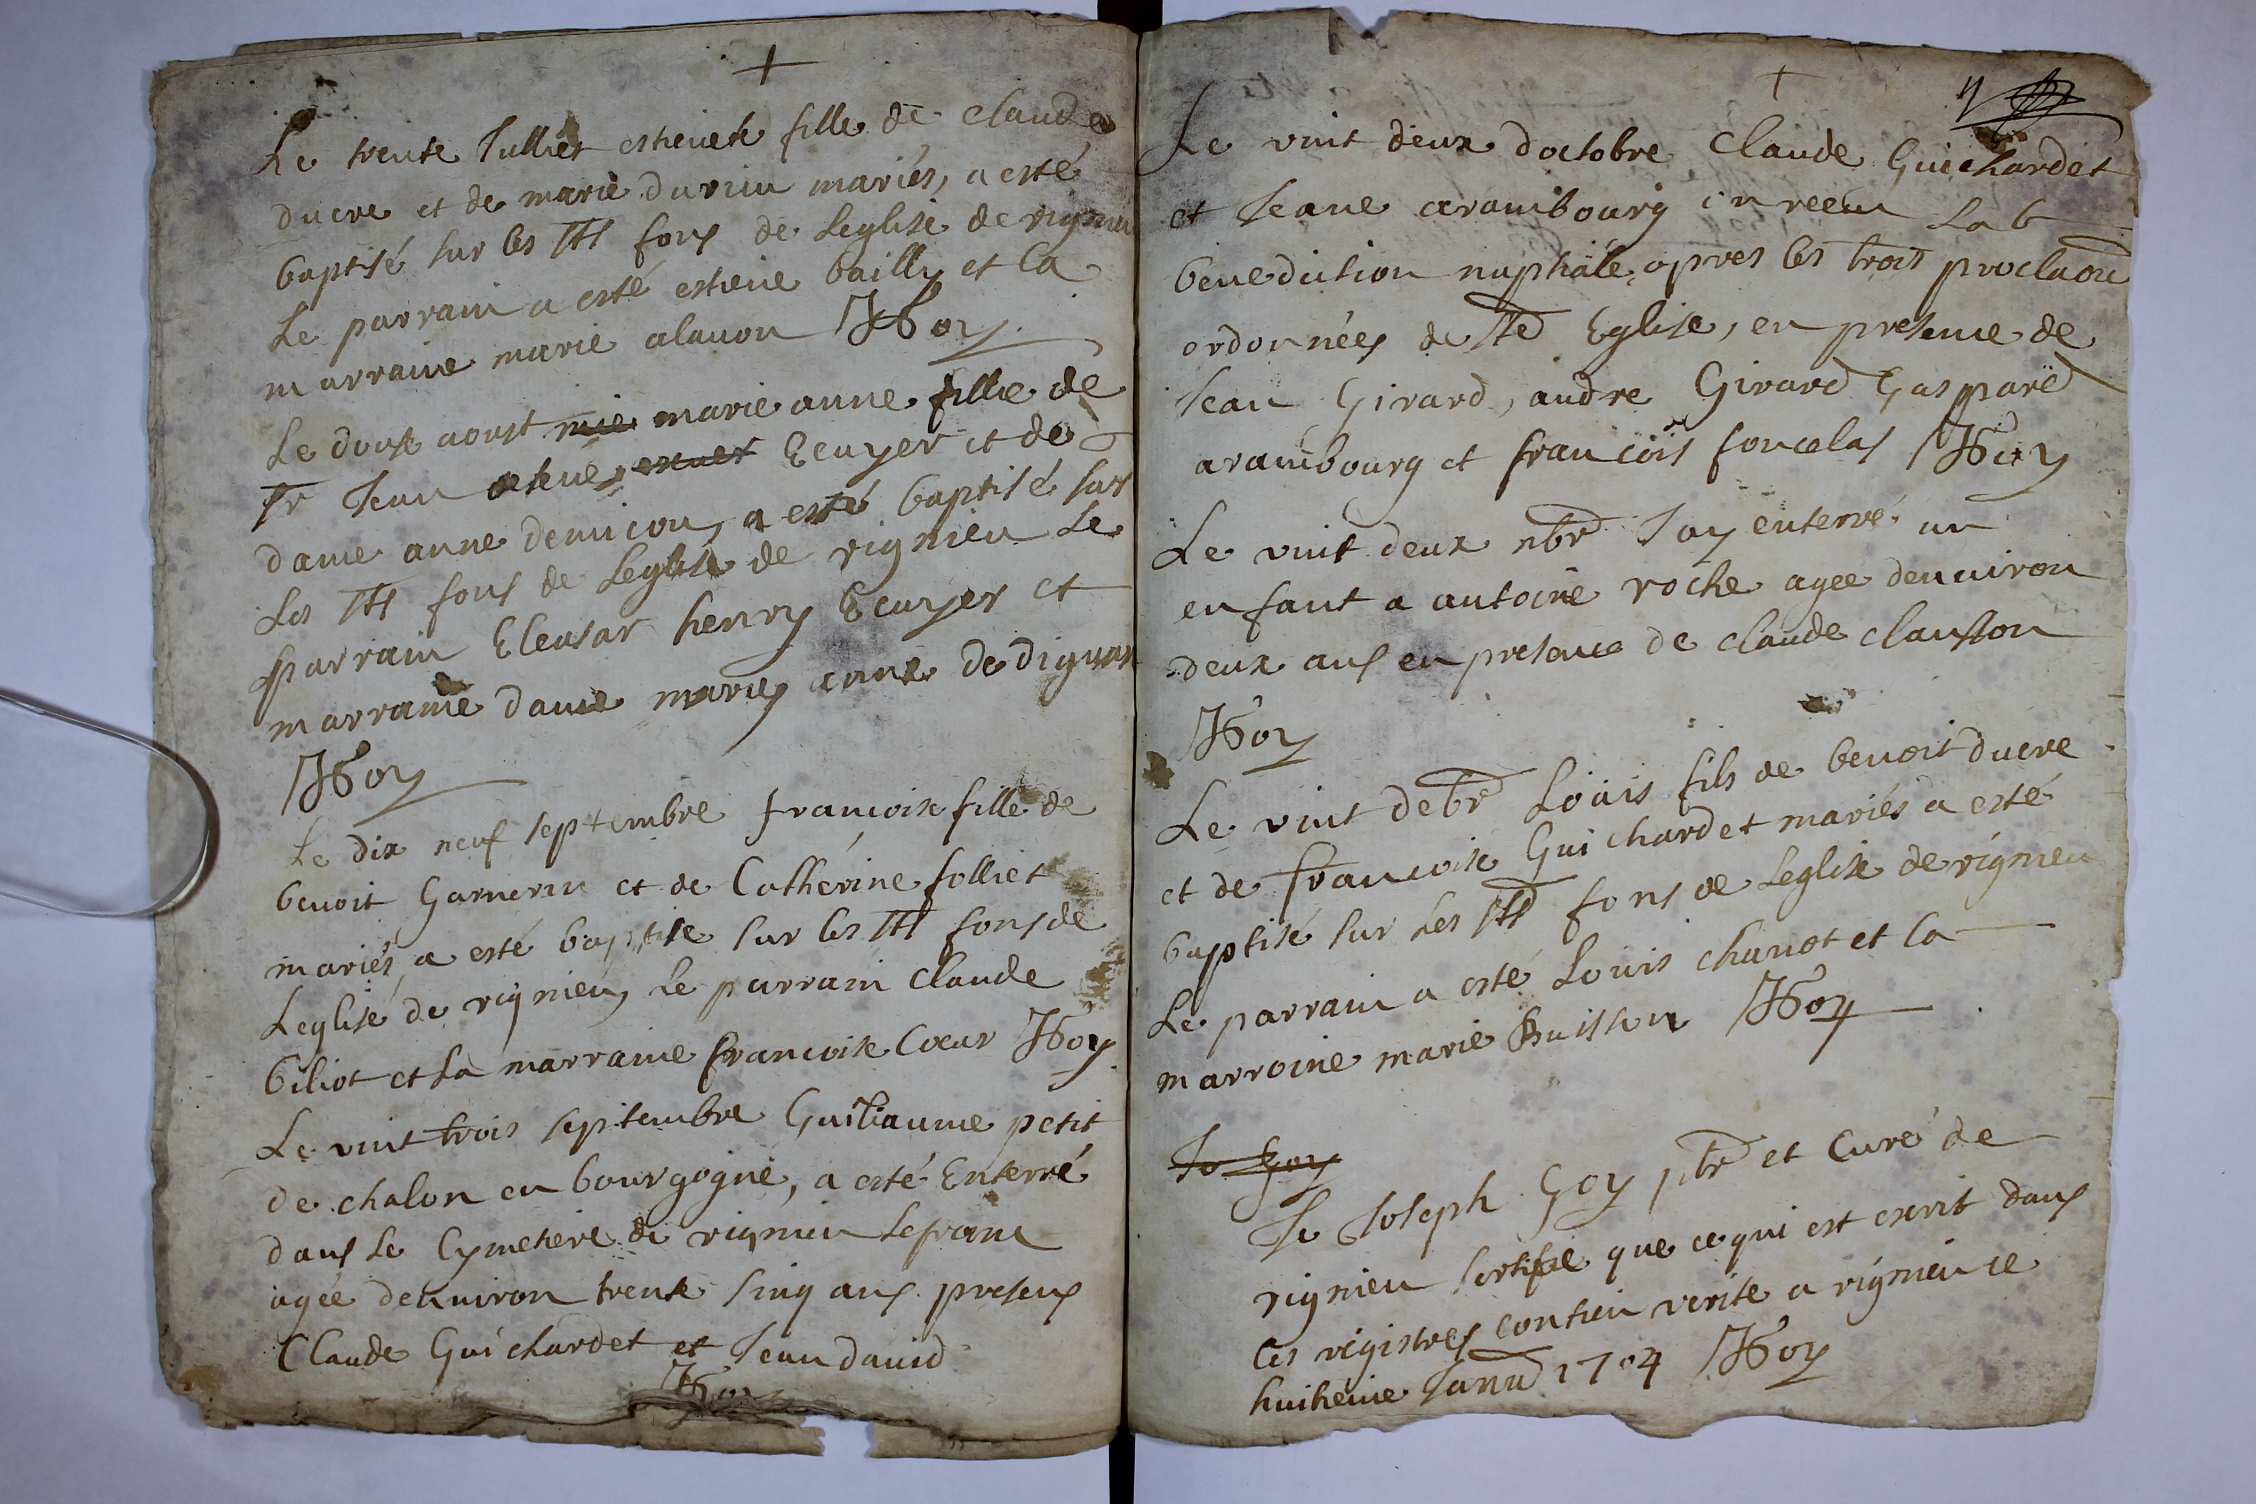 Le trente Julliet estienete fille de claude
ducre et de marie durieu mariés, a esté
baptisé sur les sts fons de Leglise de rignieu
Le parrain a esté estiene bailly et la
marraine marie alauon JGoy
Le douse aoust mie marie anne fillie de
sr Jean Ecuyer et de
dame anne demicou, a esté baptisé sur
Les sts fons de Leglise de rignieu Le
parrain Eleasar henry Ecuyer et
marraine dame marie anne de
JGoy
Le dix neuf septembre francoise fille de
benoit Garnerin et de Catherine folliet
mariés, a esté baptise sur les sts fons de
Leglise de rignieu, Le parrain Claude
biliot et La marraine francoise Coeur JGoy
Le vint trois septembre Guiliaume petit
de chalon en bourgogne, a esté Enterré
dans Le Cymetiere de rignieu Lefranc
agée denuiron trente sinq ans presens
Claude Guichardet et Jean dauid
JGoy
Le vint deux doctobre Claude Guichardet
et Jeane arambourg on receu La b
benediction nuptiale, apres les trois proclaōn
ordonnées de ste Eglise, en presence de
Jean Girard, andre Girard Gaspard
arambourg et francois foncelas JGoy
Le vint deux nbre Jay enterré un
enfant a antoine roche agee denuiron
deux ans en presence de claude clauson
JGoy
Le vint debre Loüis fils de benoit ducre
et de francoise Guichardet mariés a esté
baptisé sur Les sts fons de Leglise de rignieu
Le parrain a esté Louis chanot et la
marroine marie Buisson JGoy
Jo Goy
Je Joseph Goy ptre et Curé de
rignieu sertifie que ce qui est escrit dans
Ces registres contien verite a rignieu ce
huitieme Janu 1704 JGoy